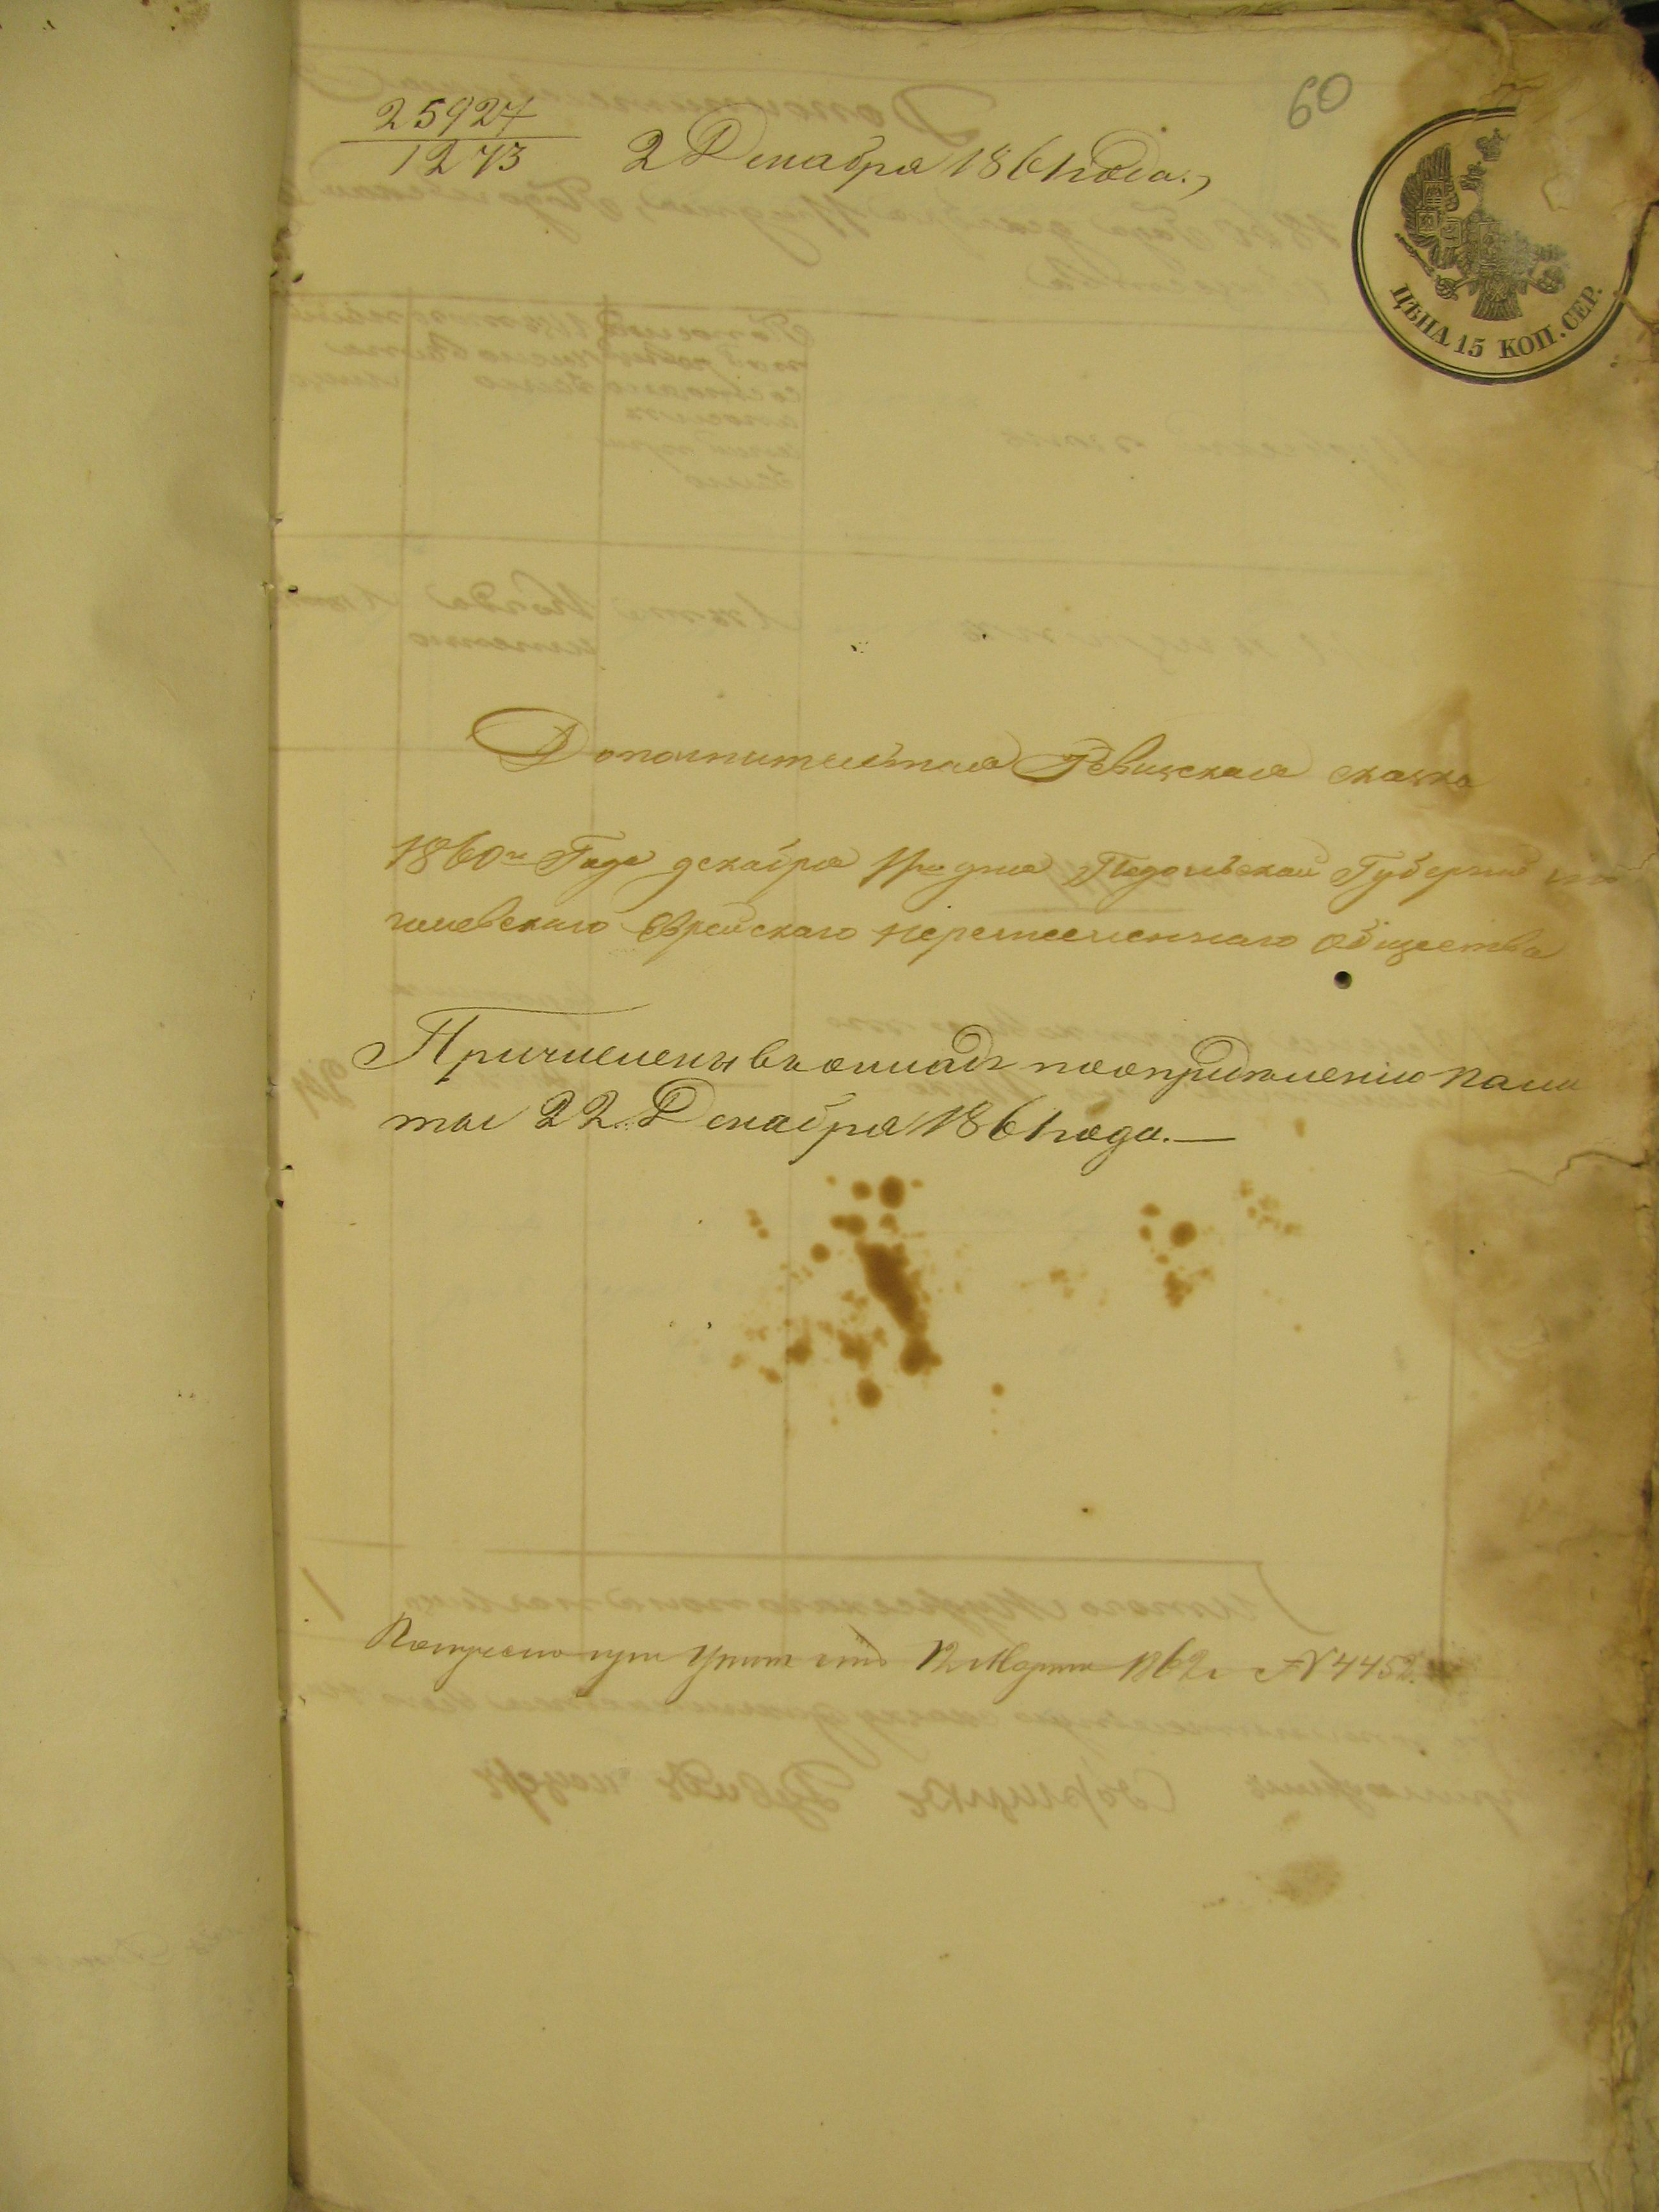 60
25927
1273
2 Декабря 1861 года.
ЦѢНА 15 КОП. СЕР.
Дополнительная Ревизская сказка
1860го Года декабря дня Подольской Губернии мо
гилевскаго Еврейскаго перечисленнаго общества
Причислены въ окладъ по опредѣленію пала
ты 22 Декабря 1861 года.—
12 Марта 1862 г № 4452